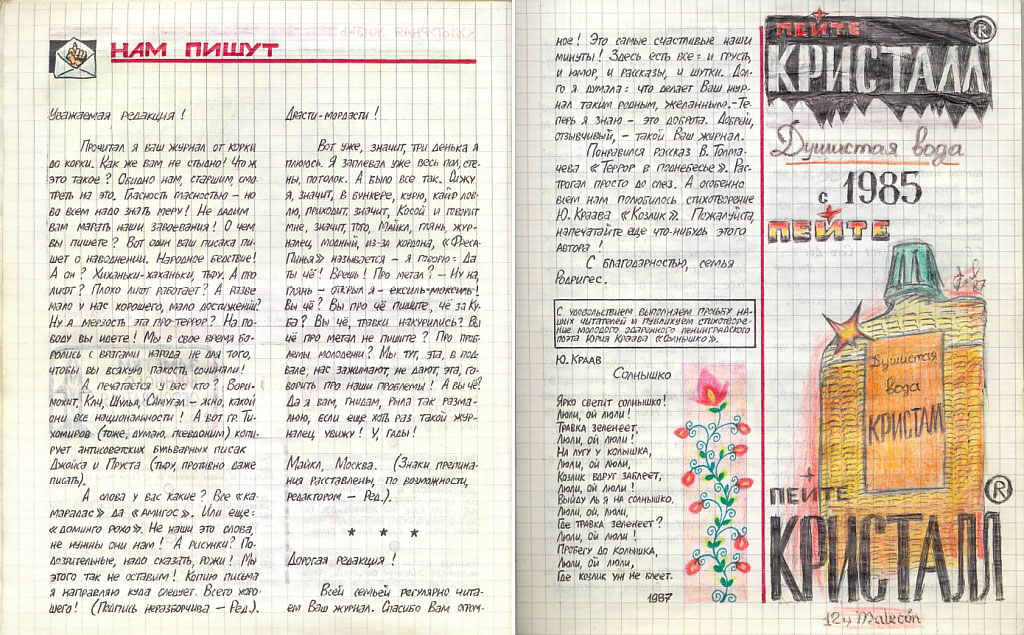 НАМ ПИШУТ
Уважаемая редакция!
Прочитал я ваш журнал от корки
до корки. Как же вам не стыдно! Что ж
это такое? Обидно нам, старшим, смо-
треть на это. Гласность гласностью – но
во всем надо знать меру! Не дадим
вам марать наши завоевания! О чем
вы пишете? Вот один ваш писака пи-
шет о наводнении. Народное бедствие!
А он? Хиханьки-хаханьки, тьфу. А что
лифт? Плохо лифт работает? А разве
мало у нас хорошего, мало достижений?
Ну а мерзость эта про террор? На по-
воду вы идете! Мы в свое время бо-
ролись с врагами народа не для того,
чтобы вы всякую пакость сочиняли!
А печатается у вас кто?
они все национальности! А вот гр. Ти-
хомиров (тоже, думаю, псевдоним) копи-
рует антисоветских бульварных писак
Джойса и Пруста (тьфу, противно даже
писать).
А слова у вас какие? Все «ка-
марадас» да «амигос». Или еще:
«доминго рохо». Не наши это слова,
не нужны они нам! А рисунки? По-
дозрительные, надо сказать, рожи! Мы
этого так не оставим! Копию письма
я направляю куда следует. Всего хоро-
шего! (Подпись неразборчива – Ред.).
Драсти-мордасти!
Вот уже, значит, три денька я
плююсь. Я заплевал уже весь пол, сте-
ны, потолок. А было все так. Сижу
я, значит, в бункере, курю, кайф лов-
лю, приходит, значит, Косой и говорит
мне, значит, того, Майкл, глянь, жур-
налец, модный, из-за кордона, «Фреса-
Пинья» называется – я говорю: Да
ты чё! Врешь! Про метал? – Ну на,
глянь – открыл я – ексиль-моксиль!
Вы чё? Вы про чё пишите, чё за Ку-
ба? Вы чё, травки накурились? Вы
чё про метал не пишите? Про проб-
лемы молодежи? Мы тут, эта, в под-
вале, нас зажимают, не дают, эта, го-
ворить про наши проблемы! А вы чё?
Да я вам, гнидам, рыла так разма-
люю, если еще хоть раз такой жур-
налец увижу! У, гады!
Майкл, Москва. (Знаки препина-
ния расставлены, по возможности,
редактором – Ред.).
* * *
Дорогая редакция!
Всей семьей регулярно чита-
ем Ваш журнал. Спасибо Вам огром-
ное! Это самые счастливые наши
минуты! Здесь есть все: и грусть,
и юмор, и рассказы, и шутки. Дол-
го я думала: что делает Ваш жур-
нал таким родным, желанным. – Те-
перь я знаю – это доброта. Добрый,
отзывчивый, – такой Ваш журнал.
Понравился рассказ В. Толма-
чева «Террор в поднебесье». Рас-
трогал просто до слез. А особенно
всем нам полюбилось стихотворение
Ю. Краава «Козлик». Пожалуйста,
напечатайте еще что-нибудь этого
автора!
С благодарностью, семья
Родригес.
С удовольствием выполняем просьбу на-
ших читателей и публикуем стихотворе-
ние молодого одаренного ленинградского
поэта Юрия Краава «Солнышко».
Ю. Краав
Солнышко
Ярко светит солнышко!
Люли, ой люли!
Травка зеленеет,
Люли, ой люли!
На лугу у колышка,
Люли, ой люли,
Козлик вдруг заблеет,
Люли, ой люли!
Выйду ль я на солнышко,
Люли, ой, люли,
Где травка зеленеет?
Люли, ой люли!
Пробегу до колышка,
Люли, ой люли,
Где козлик уж не блеет.
1987
ПЕЙТЕ
КРИСТАЛЛ ®
Душистая вода
с 1985
ПЕЙТЕ
87
Душистая
вода
КРИСТАЛЛ
ПЕЙТЕ
®
КРИСТАЛЛ
12 y Malecón